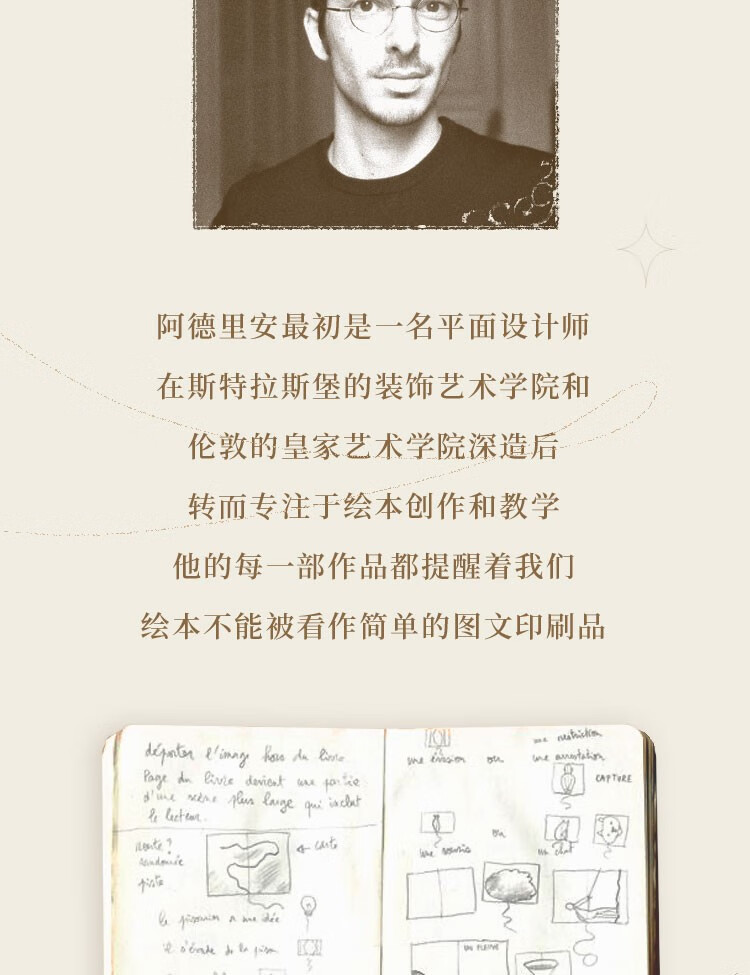 阿德里安最初是一名平面设计师
在斯特拉斯堡的装饰艺术学院和
伦敦的皇家艺术学院深造后
转而专注于绘本创作和教学
他的每一部作品都提醒着我们
绘本不能被看作简单的图文印刷品
déporter l'image hors du livre
Page du livre devient une partie
d'une scène plus large qui inclut
le lecteur.
route ?
randonnée
piste
carte
le prisonnier a une idée
il s'évade de la prison
une évasion ou une arrestation
CAPTURE
ou
une souris
un chat
UN FLEUVE